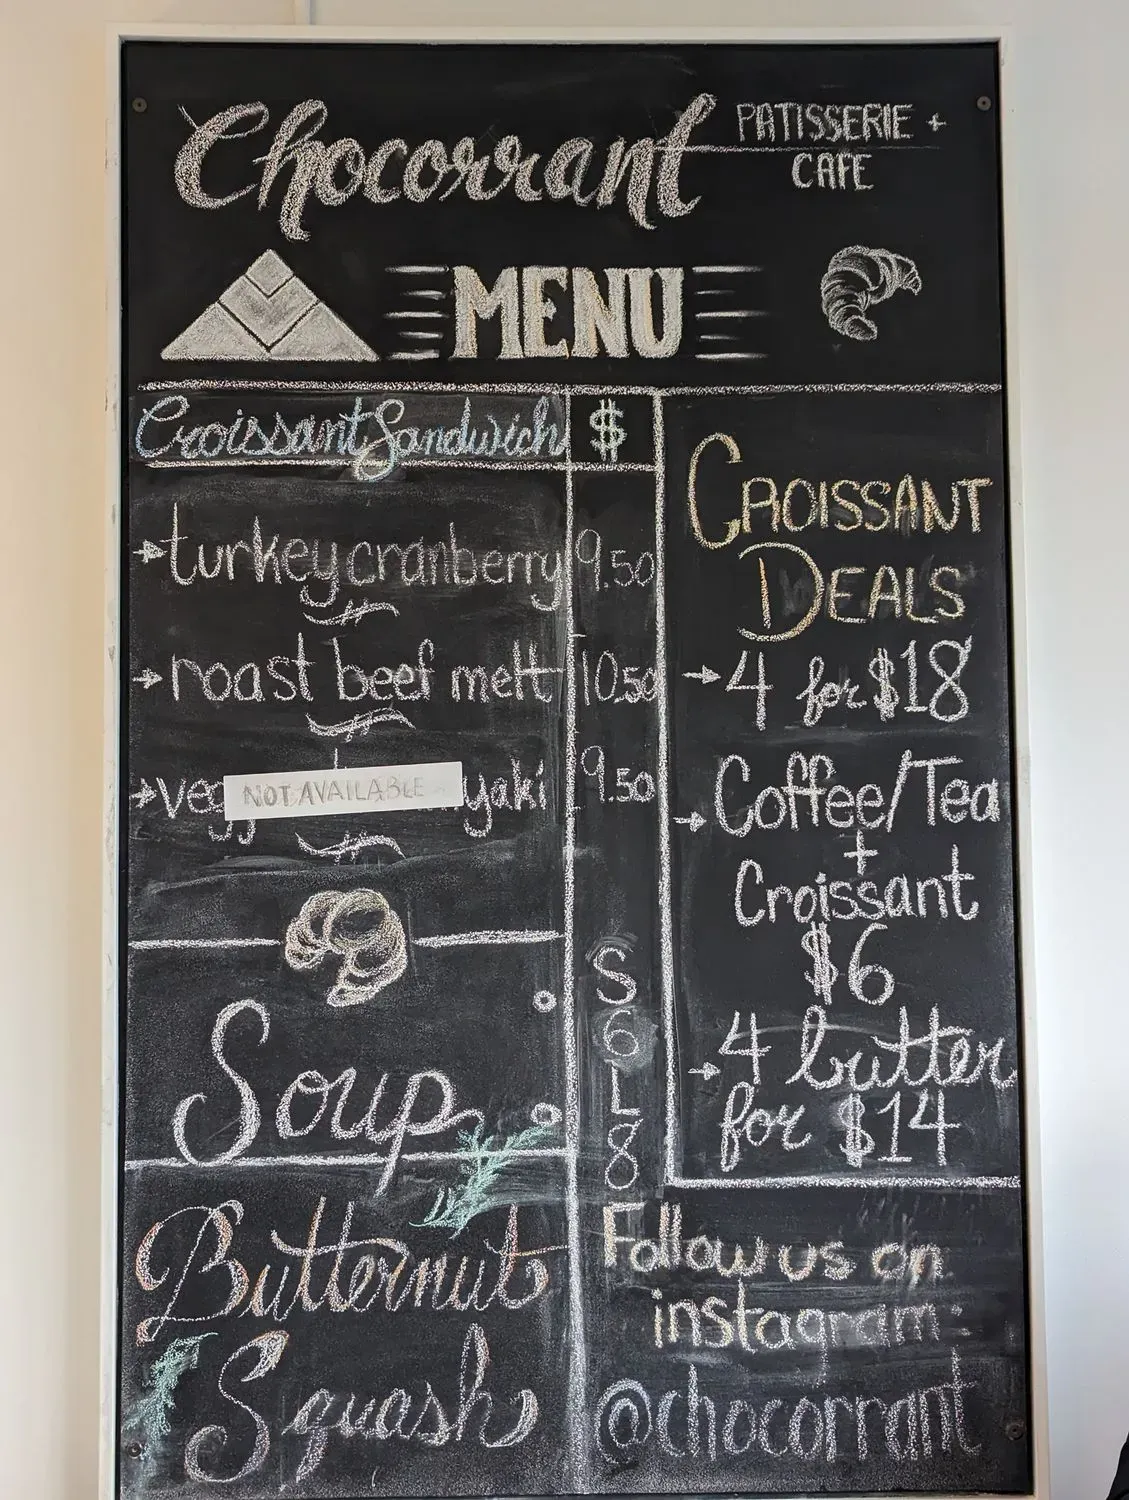 Chocorrant PATISSERIE +
CAFE
MENU
Croissant Sandwich $
turkey cranberry 9.50
roast beef melt 10.50
NOT AVAILABLE yaki 9.50
Soup
S
6
L
8
Butternut
Squash
CROISSANT
DEALS
4 for $18
Coffee/Tea
+
Croissant
$6
4 butter
for $14
Follow us on
instagram:
@chocorrant